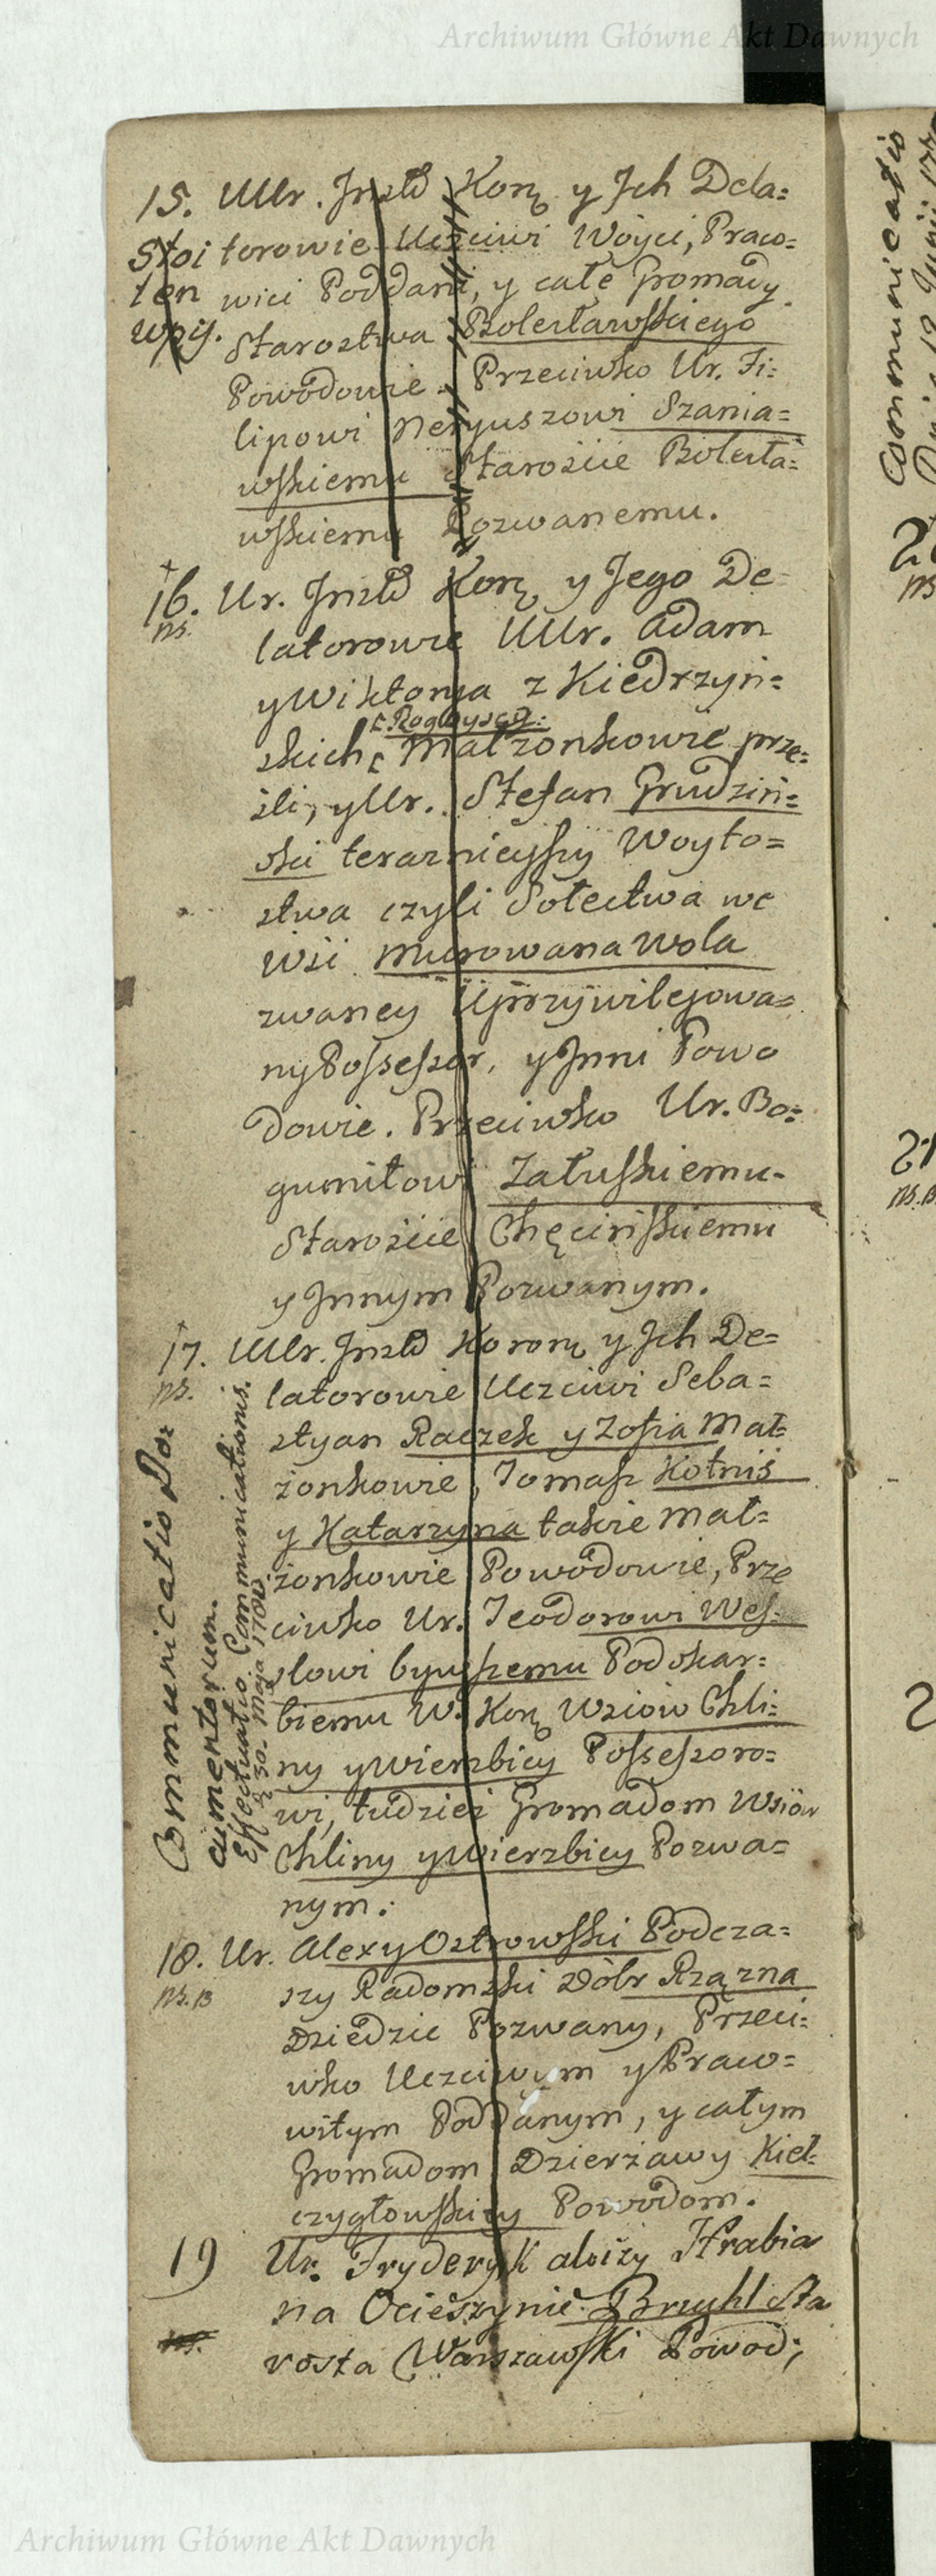 Archiwum Główne Akt Dawnych
15. UUr. Insty Kor. y Jch Dela=
Stoi torowie Uczciwi Woyci, Praco=
ten wici Poddani, y całe Gromady
wpis. Starostwa Bolesławskiego
Powodowie. Przeciwko Ur. Fi=
lipowi Neryuszowi Szania=
wskiemu Starośćie Bolesła=
wskiemu Pozwanemu.
16. Ur. Insty Kor. y Jego De=
ns. latorowie UUr. Adam
y Wiktorya z Kiedrzyń=
skich
Małżonkowie prze=
śli, y Ur. Stefan Grudziń=
ski teraznieyszy Woyto=
stwa czyli Sołectwa we
Wsi Murowana Wola
zwaney Uprzywilejowa=
ny Possessor, y Jnni Powo
dowie. Przeciwko Ur. Bo=
gumiłowi Załuskiemu
Starośćie Chęcińskiemu
y Jnnym Pozwanym.
17. UUr. Insty Koron. y Jch De=
ns. latorowie Uczciwi Seba=
styan Raczek y Zofia Mał=
żonkowie, Tomasz Kotniś
y Katarzyna także Mał=
żonkowie Powodowie, Prze
ciwko Ur. Teodorowi Wes=
slowi bywszemu Podskar=
biemu W. Kor. Wsiów Chli=
ny y Wierzbicy Possessoro=
wi, tudzież Gromadom Wsiów
Chliny y Wierzbicy Pozwa=
nym.
Communicatio Do=
cumentorum.
Effectuatio Communicationis.
d. 30. Maja
18. Ur. Alexy Ostrowski Podcza=
ns. B szy Radomski Dóbr Rząsna
Dziedzic Pozwany, Przeci=
wko Uczciwym y Praco=
witym Poddanym, y całym
Gromadom Dzierżawy Kieł=
czygłowskiey Powodom.
19 Ur. Fryderyk Aloizy Hrabia
na Ocieszynie Bruyhl Sta
rosta Warszawski Powod;
Communicatio
Archiwum Główne Akt Dawnych